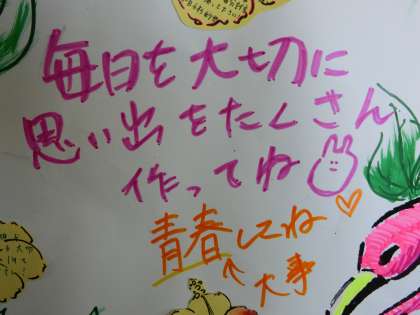 毎日を大切に
思い出をたくさん
作ってね
青春してね
大事